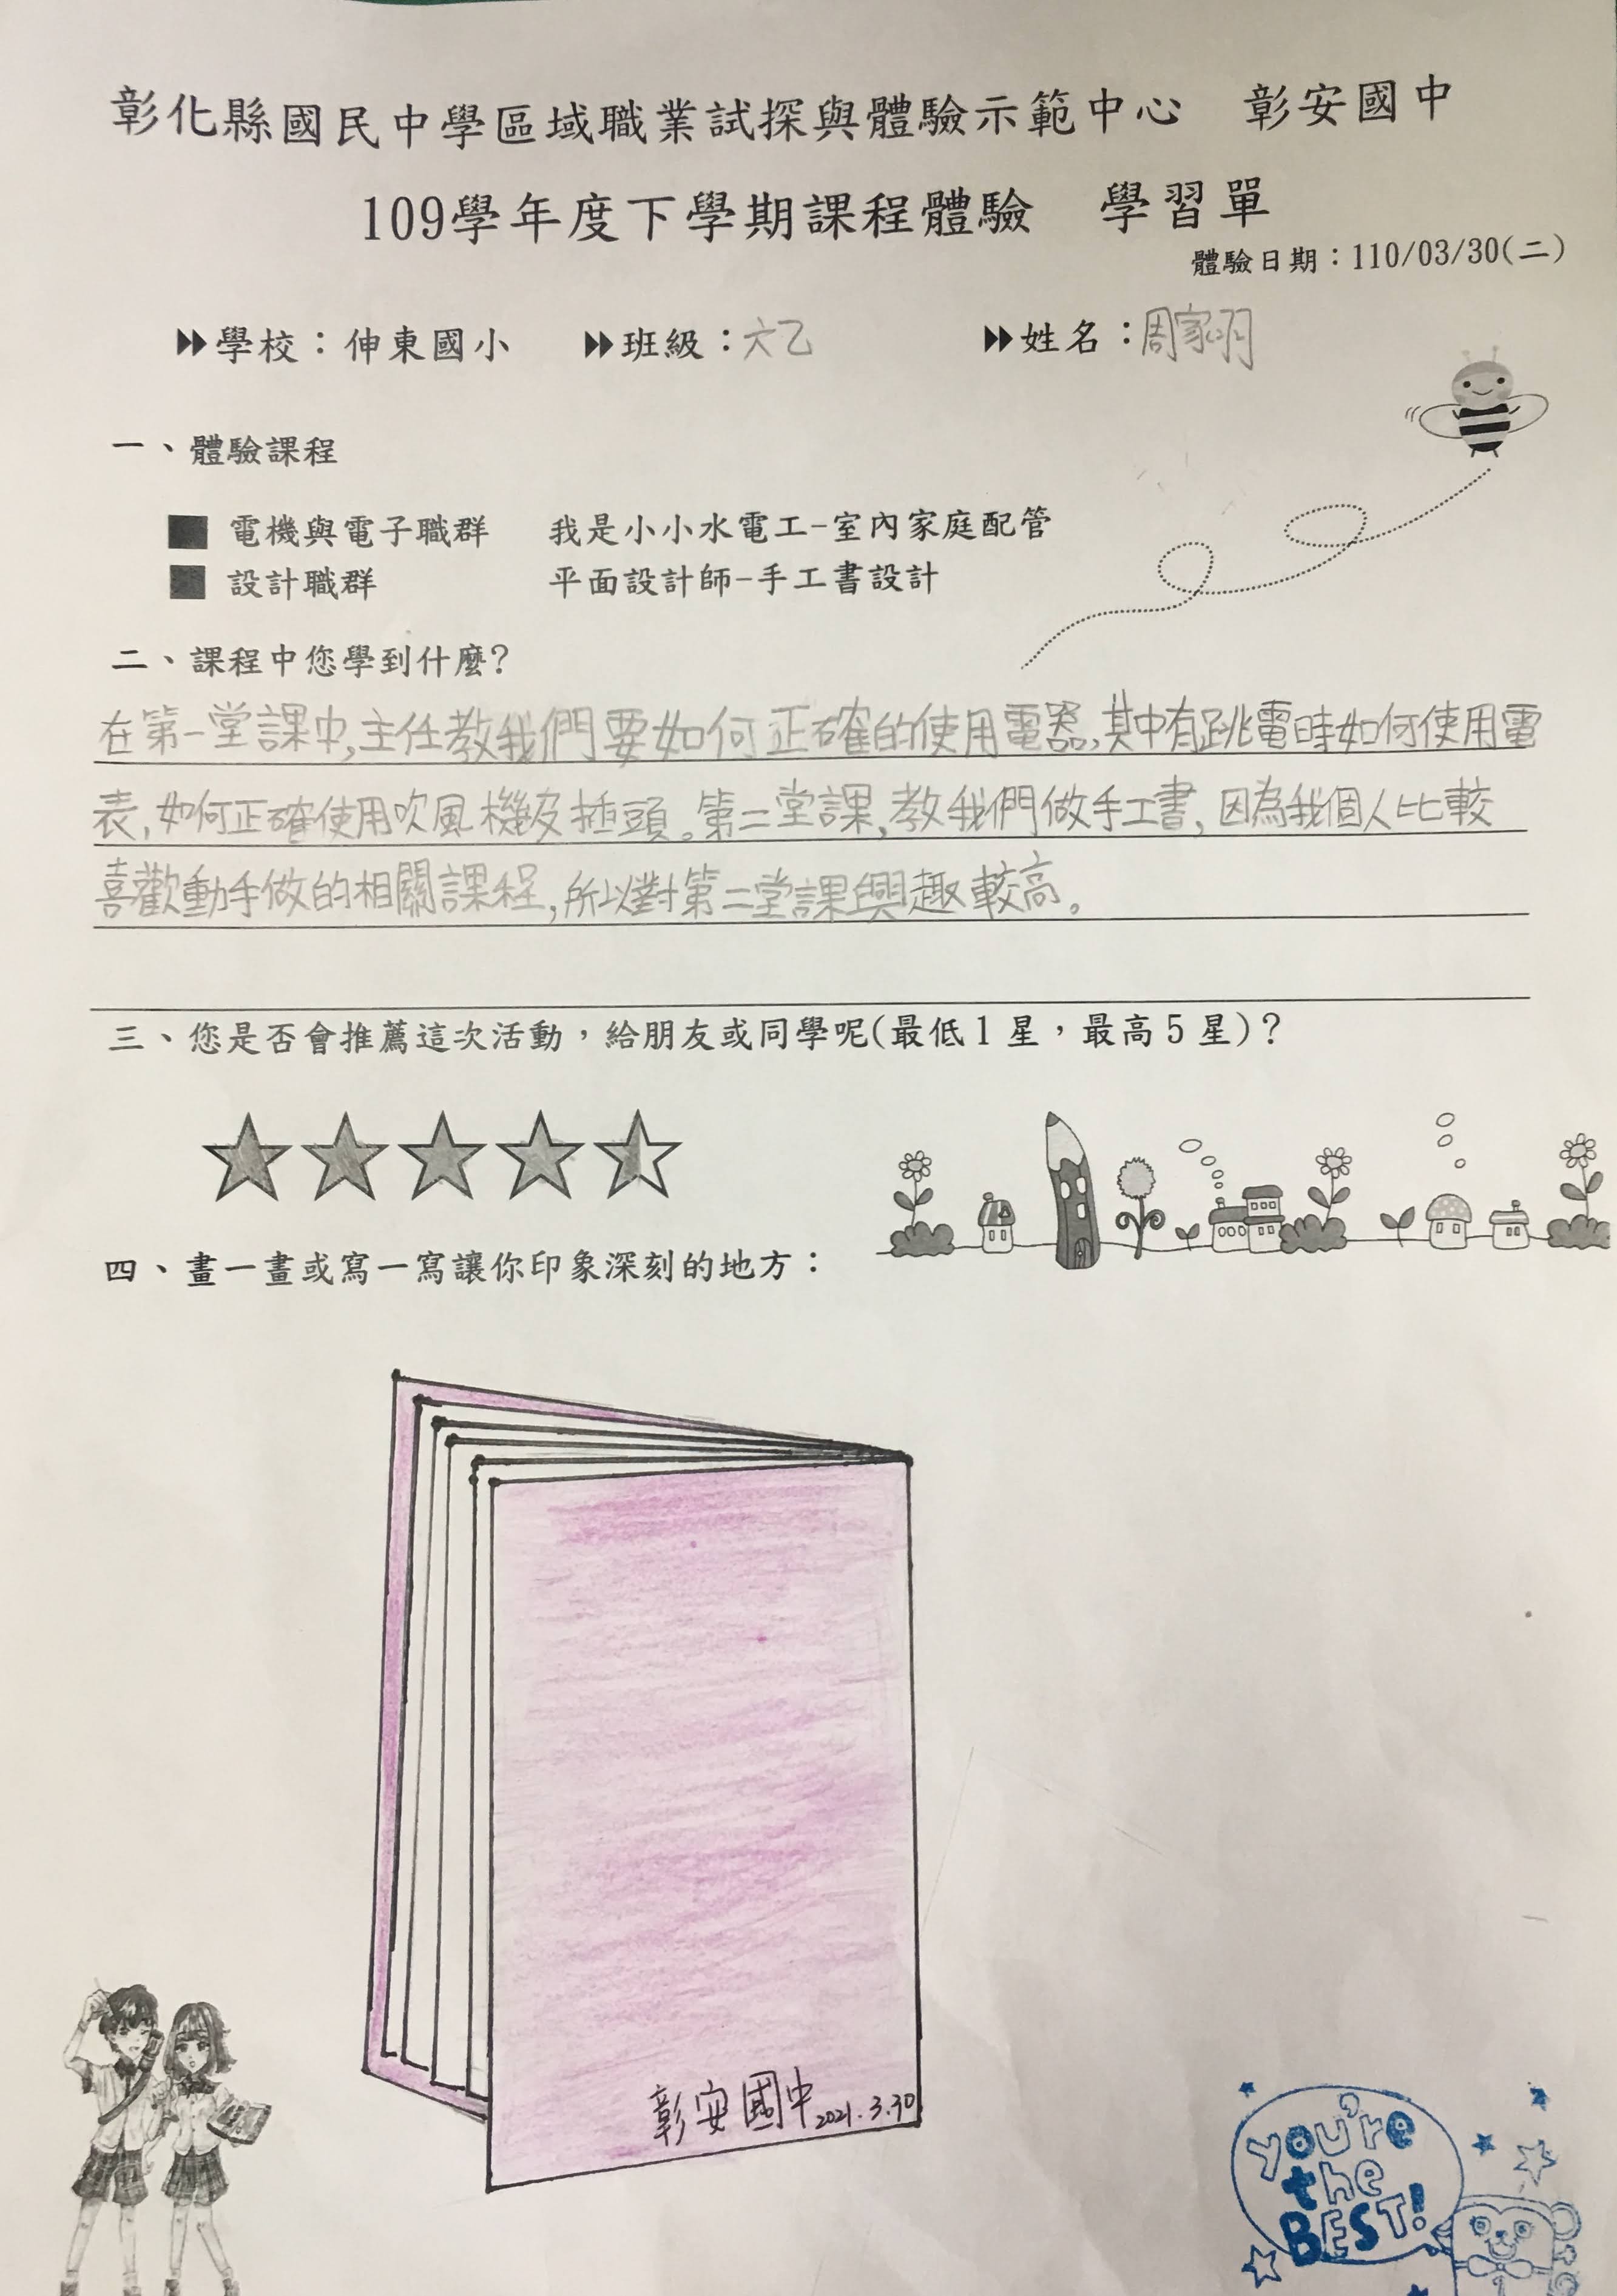 彰化縣國民中學區域職業試探與體驗示範中心　彰安國中
109學年度下學期課程體驗　學習單
體驗日期：110/03/30(二)
學校：伸東國小　班級：六乙　姓名：周家羽
一、體驗課程
■ 電機與電子職群　我是小小水電工-室內家庭配管
■ 設計職群　平面設計師-手工書設計
二、課程中您學到什麼?
在第一堂課中,主任教我們要如何正確的使用電器,其中有跳電時如何使用電
表,如何正確使用吹風機及插頭。第二堂課,教我們做手工書,因為我個人比較
喜歡動手做的相關課程,所以對第二堂課興趣較高。
三、您是否會推薦這次活動，給朋友或同學呢(最低1星，最高5星)？
四、畫一畫或寫一寫讓你印象深刻的地方：
彰安國中2021.3.30
you're
the
BEST!